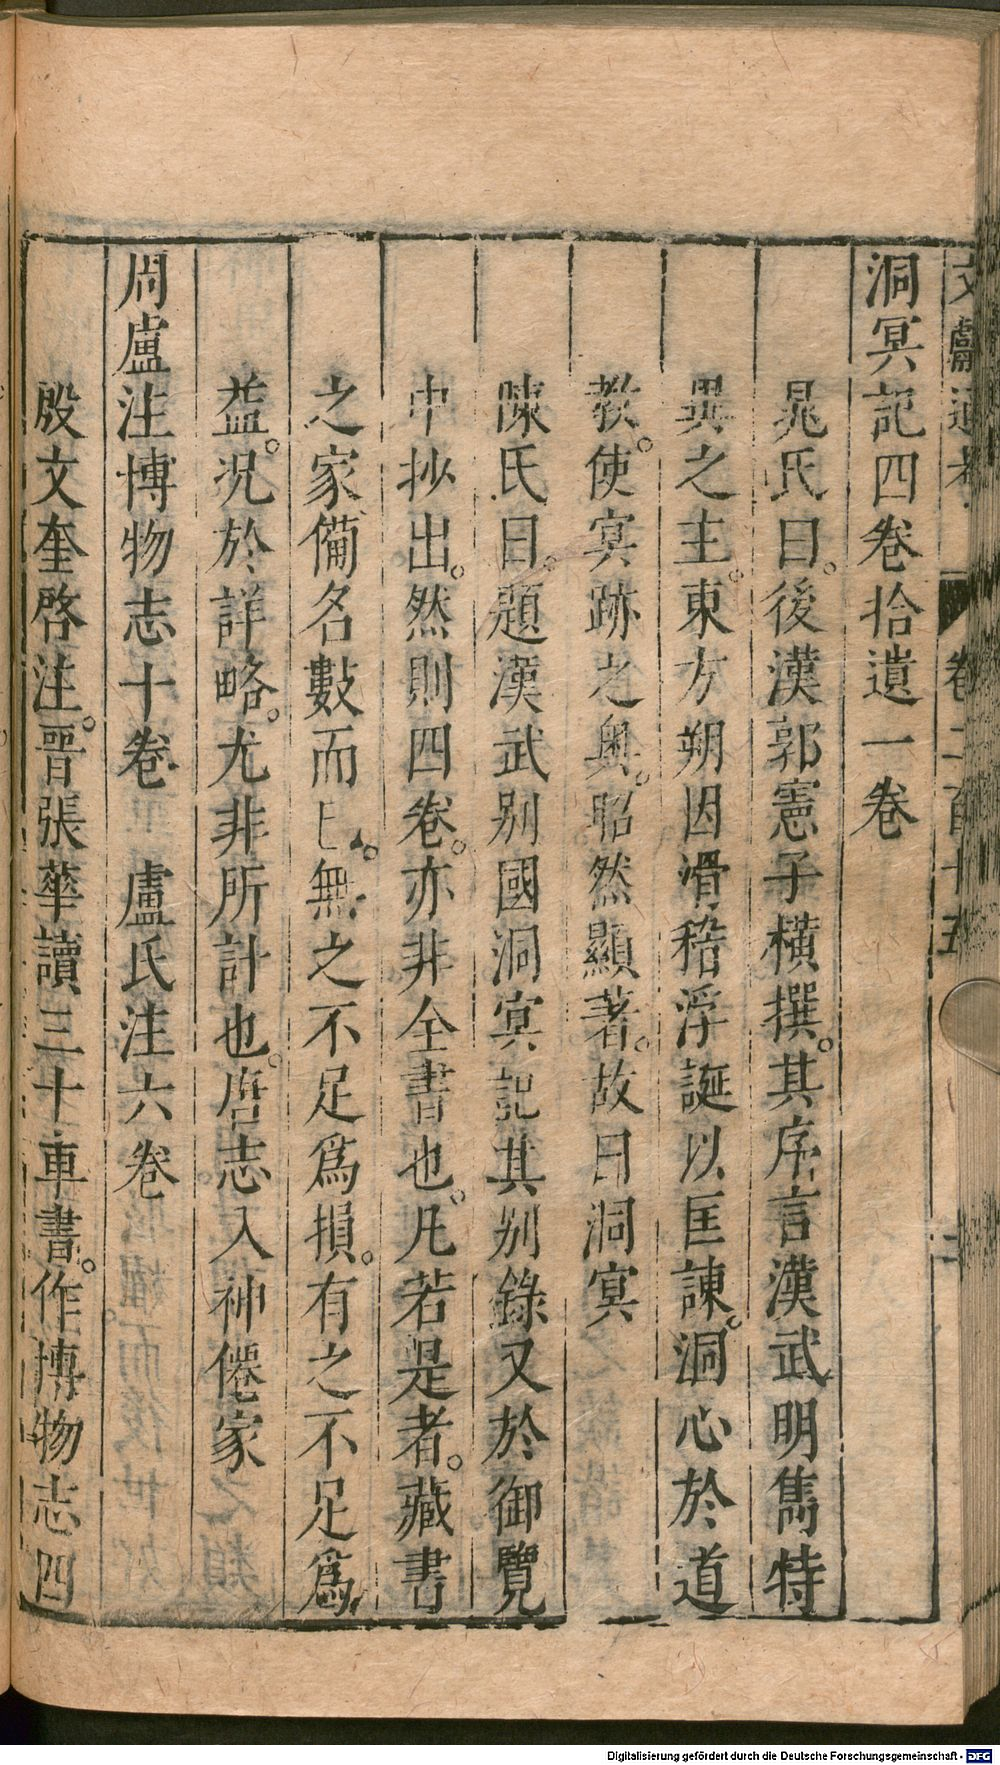 文獻通考 卷二百十五 二
洞冥記四卷拾遺一卷
晁氏曰。後漢郭憲子橫撰。其序言漢武明雋特
異之主。東方朔因滑稽浮誕以匡諫。洞心於道
教。使冥跡之奧。昭然顯著。故曰洞冥
陳氏曰。題漢武别國洞冥記其别錄又於御覽
中抄出。然則四卷。亦非全書也。凡若是者。藏書
之家備名數而已。無之不足爲損。有之不足爲
益。况於詳略。尤非所計也。唐志入神僊家
周盧注博物志十卷 盧氏注六卷
殷文奎啓注。晉張華讀三十車書。作博物志四
Digitalisierung gefördert durch die Deutsche Forschungsgemeinschaft - DFG